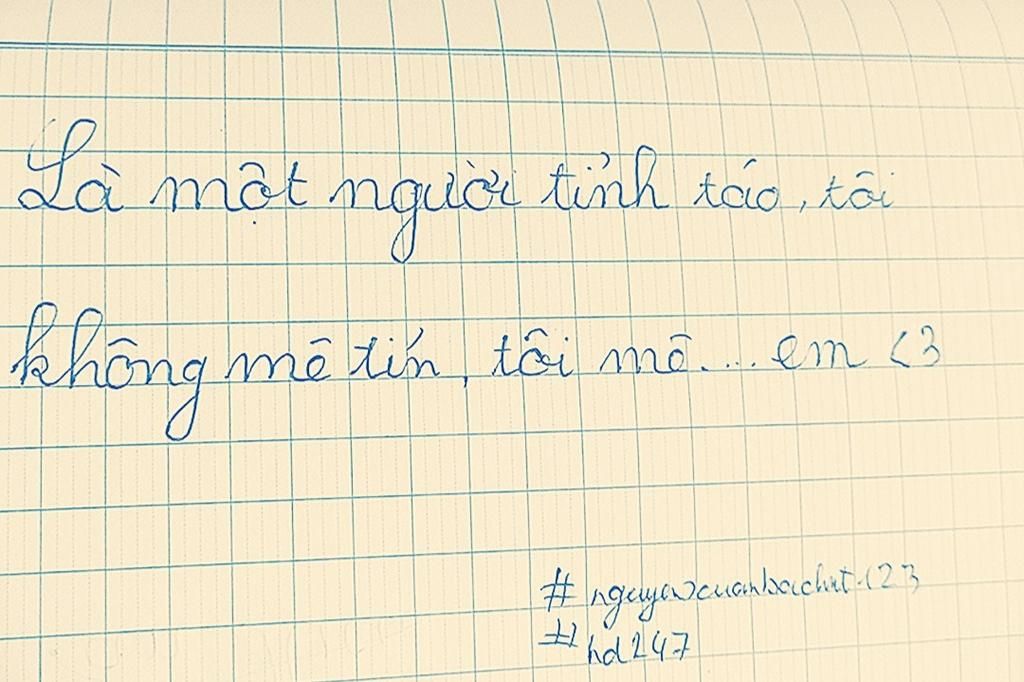 Là một người tỉnh táo, tôi
không mê tín, tôi mê.... em <3
#
#hd247